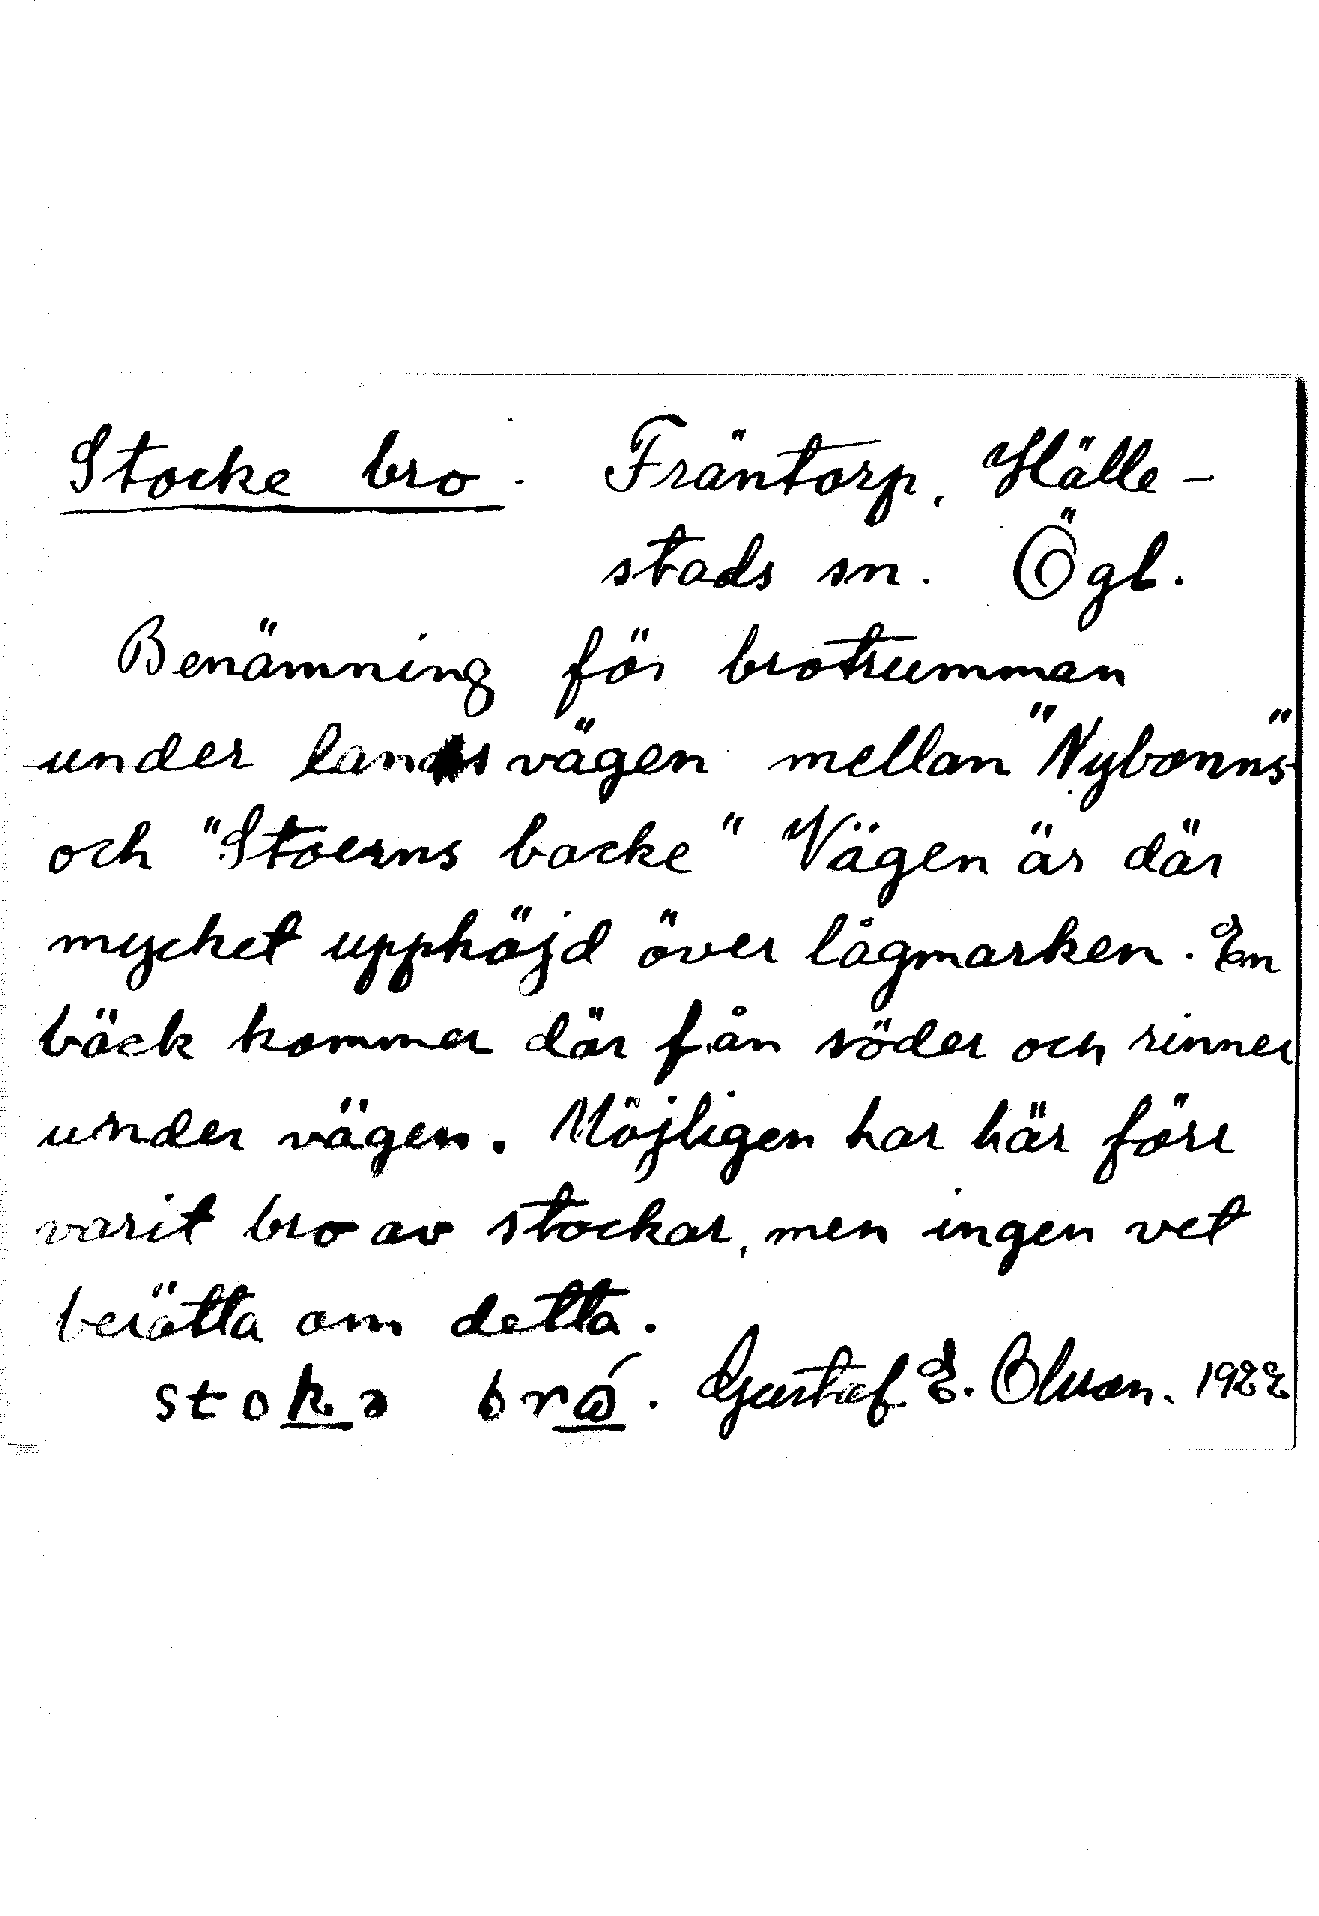 Stocke bro. Fräntorp, Hälle-
stads sn. Ögl.
Benämning för brotrumman
under landsvägen mellan "Nybonns"
och "Stoerns backe" Vägen är där
mycket upphöjd över lågmarken. En
bäck kommer där från söder och rinner
under vägen. Möjligen har här förr
varit bro av stockar, men ingen vet
berätta om detta.
stokə Gustaf E. Olsson. 1922